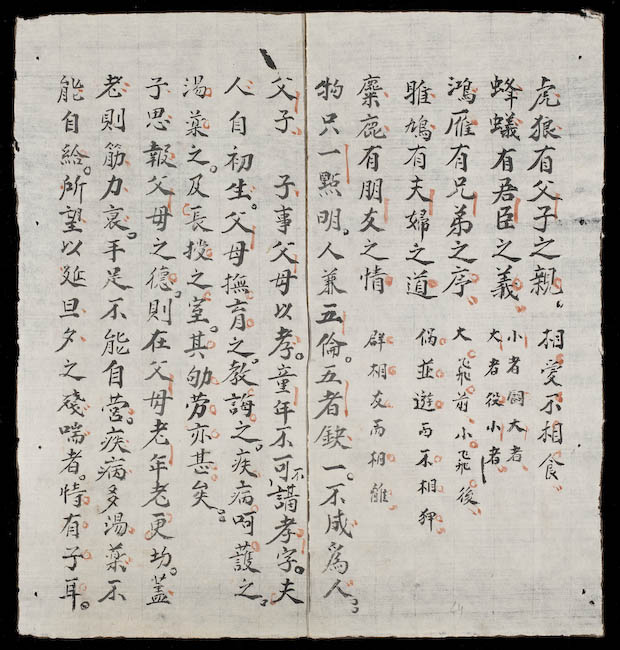 虎狼有父子之親。 相愛不相食
蜂蟻有君臣之義 小者大者
大者役小者
鴻雁有兄弟之序 大飛前小飛後
雎鳩有夫婦之道 偶並遊而不相狎
麋鹿有朋友之情 群相友而相離
物只一點明。人兼五倫。五者缺一。不成爲人。
父子 子事父母以孝。童年不可不講孝字。夫
人自初生。父母撫育之。教誨之。疾病呵護之。
湯藥之。及長授之室。其劬勞亦甚矣。
子思報父母之德。則在父母老年老更切。蓋
老則筋力衰。手足不能自營。疾病多湯藥不
能自給。所望以延旦夕之殘喘者。恃有子耳。